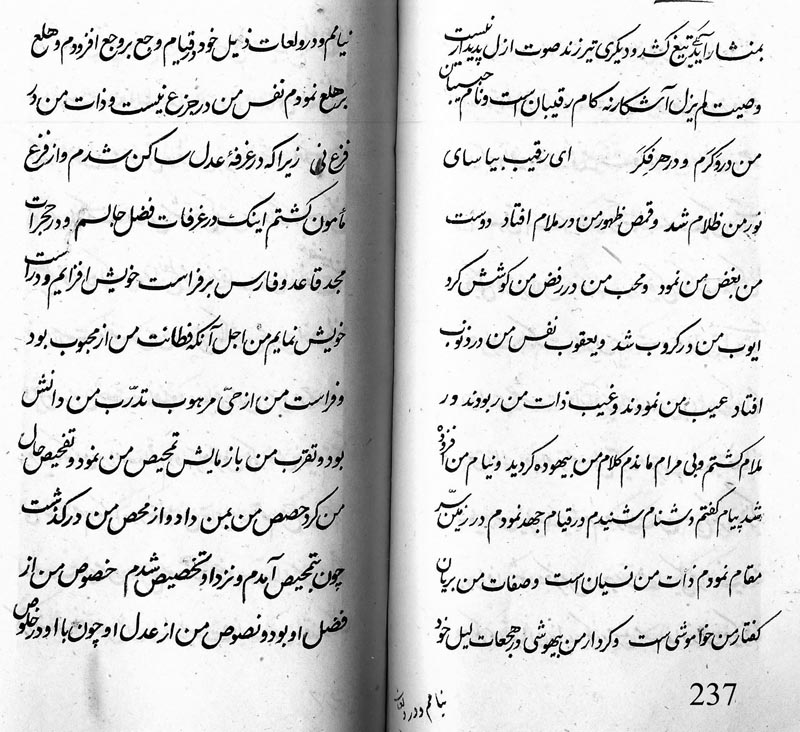 بمنشار آیکی تیغ کشد و دیگری تیر زند صوت ازل پدیدار نیست
وصیت لم یزل آشکار نه کام رقیبان است و نام حبیبان
من در و کرم و در هر فکر ای رقیب بیاسای
نور من ظلام شد و قمص ظهور من در ملام افتاد دوست
من بغض من نمود و محب من در رفض من کوشش کرد
ایوب من در کروب شد و یعقوب نفس من در ذنوب
افتاد عیب من نمودند و غیب ذات من ربودند و ر
ملام کشتم و بی مرام ماندم کلام من بیهوده کردید و نیام من افزوده
شد پیام کفتم دشنام شنیدم در قیام جهد نمودم در زمین سر
مقام نمودم ذات من نسیان است و صفات من بریان
کفتار من خواموشی است و کردار من بیهوشی در هجعات لیل خود
نیامم و در ولعات
237
نیامم و در ولعات ذیل خود در قیام وجع بر وجع افزودم و هلع
بر هلع نمودم نفس من در جزع نیست و ذات من در
فزع نی زیرا که در غرفهٔ عدل ساکن شدم و از فزع
مأمون کشتم اینک در غرفات فضل جالسم و در حجرات
مجد قاعد و فارس بر فراست خویش افزایم و دراست
خویش نمایم من اجل آنکه فطانت من از محبوب بود
و فراست من از حیّ مرهوب تدرّب من دانش
بود و تقرب من باز مایش تمحیص من نمود و تفحیص حال
من کرد حصص من بمن داد و از محص من در کذشت
چون بتمحیص آمدم و نزد او تخصیص شدم خصوص من از
فضل او بود و نصوص من از عدل او چون با او در خلوص